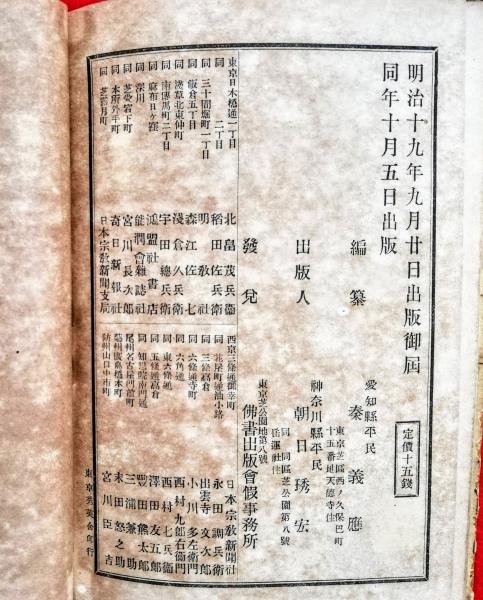 明治十九年九月廿日出版御屆
同年十月五日出版
定價十五錢
愛知縣平民
編纂 秦義應
東京芝區西ノ久保巴町
十五番地天德寺住
神奈川縣平民
出版人 朝日琇宏
同 同區芝公園第八號
岳蓮社住
發兌 佛書出版會假事務所
東京芝公園地第八號
東京日本橋通一丁目 北畠茂兵衞
同 二丁目 稻田佐兵衞
同 三十間堀町一丁目 明敎社
同 飯倉五丁目 森江佐七
同 淺草北東仲町 淺倉久兵衞
同 南傳馬町二丁目 宇田總兵衞
同 麻布日ヶ窪 鴻盟社書店
同 深川 能潤會雜誌社
同 芝愛宕下町 宮川長次郞
同 本所外手町 奇日新報社
同 芝露月町 日本宗敎新聞支局
西京三條通御幸町 日本宗敎新聞社
同 花屋町通油小路 永田調兵衞
同 三條高倉 出雲寺文次郞
同 六條通寺町 小川多左衞門
同 六角通 西村九郞右衞門
同 東六條通 西村七兵衞
同 五條通高倉 澤田友五郞
同 知恩院南門通 豐田熊太郞
尾州名古屋門前町 三浦兼助
藝州廣島橋本町 末田怒之助
防州山口中市町 宮川臣吉
東京秀英舍印行